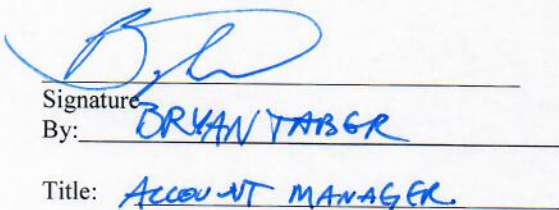 Signature
By: BRYAN TABER
Title: ACCOUNT MANAGER